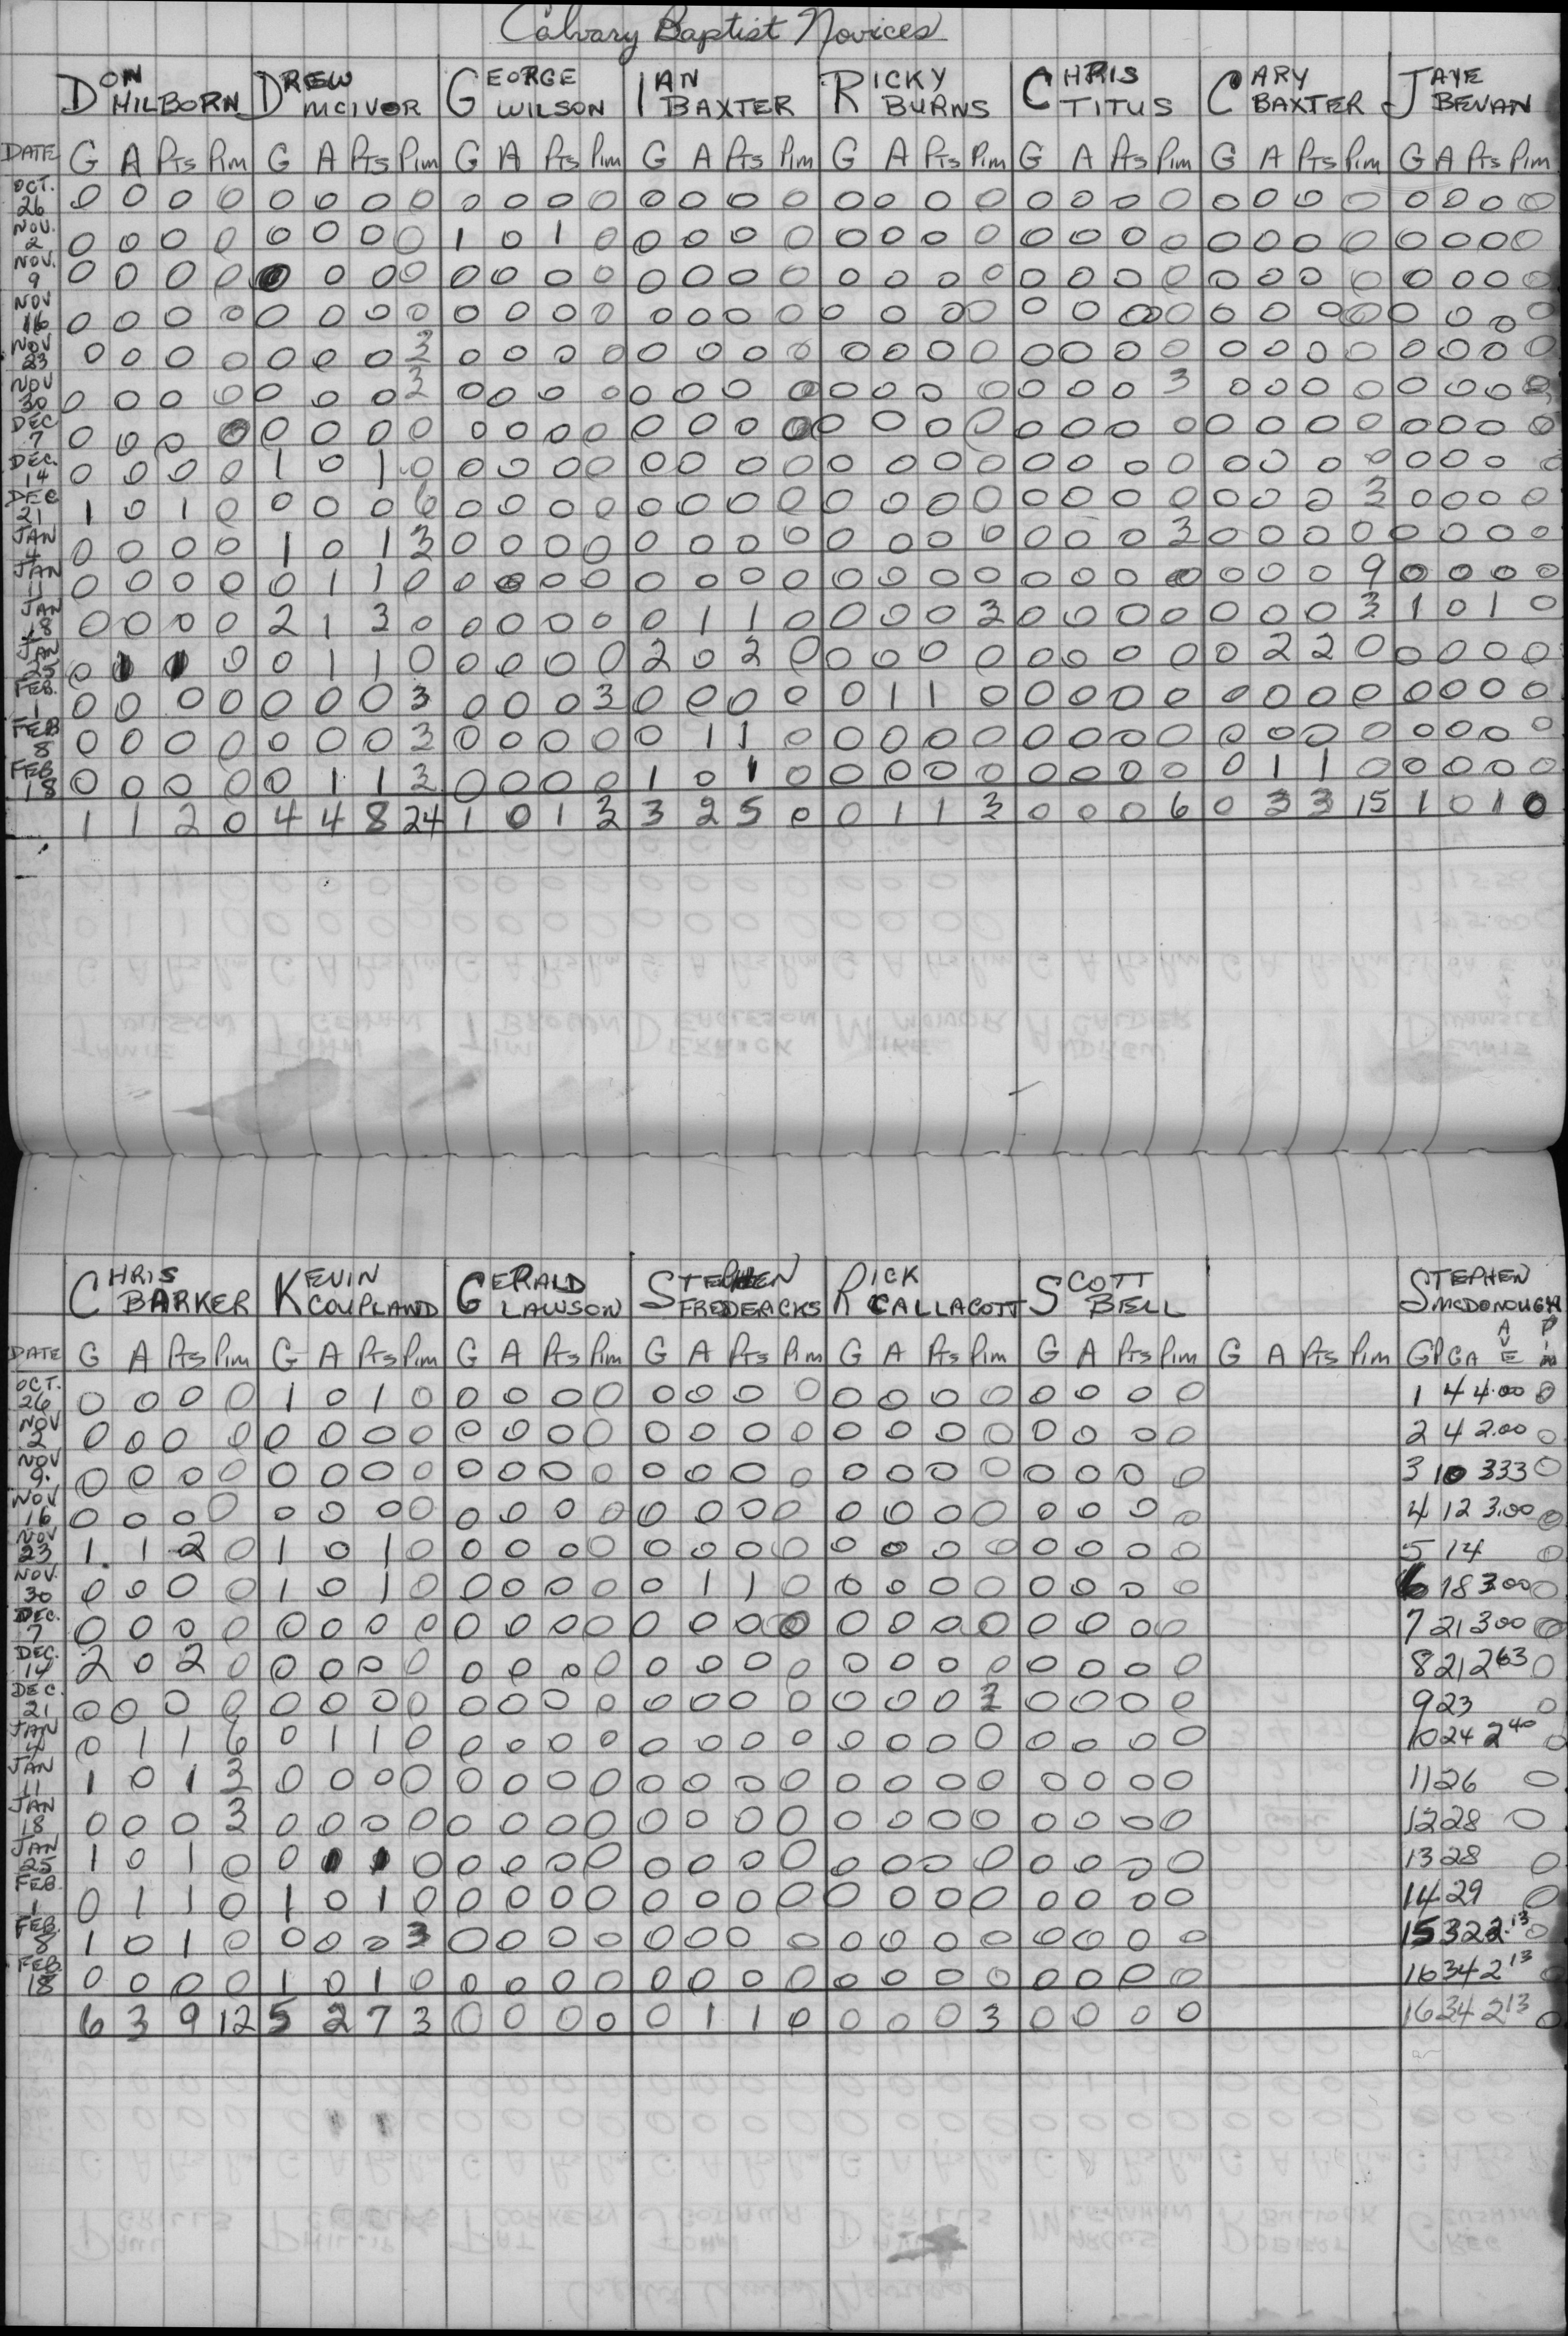 Calvary Baptist Novices
DON HILBORN DREW MCIVOR GEORGE WILSON IAN BAXTER RICKY BURNS CHRIS TITUS CARY BAXTER JAYE BEVAN
DATE G A Pts Pim G A Pts Pim G A Pts Pim G A Pts Pim G A Pts Pim G A Pts Pim G A Pts Pim G A Pts Pim
OCT. 26 0 0 0 0 0 0 0 0 0 0 0 0 0 0 0 0 0 0 0 0 0 0 0 0 0 0 0 0 0 0 0 0
NOV. 2 0 0 0 0 0 0 0 0 1 0 1 0 0 0 0 0 0 0 0 0 0 0 0 0 0 0 0 0 0 0 0 0
NOV. 9 0 0 0 0 0 0 0 0 0 0 0 0 0 0 0 0 0 0 0 0 0 0 0 0 0 0 0 0 0 0 0 0
NOV 16 0 0 0 0 0 0 0 0 0 0 0 0 0 0 0 0 0 0 0 0 0 0 0 0 0 0 0 0 0 0 0 0
NOV 23 0 0 0 0 0 0 0 3 0 0 0 0 0 0 0 0 0 0 0 0 0 0 0 0 0 0 0 0 0 0 0 0
NOV 30 0 0 0 0 0 0 0 3 0 0 0 0 0 0 0 0 0 0 0 0 0 0 0 3 0 0 0 0 0 0 0 0
DEC 7 0 0 0 0 0 0 0 0 0 0 0 0 0 0 0 0 0 0 0 0 0 0 0 0 0 0 0 0 0 0 0 0
DEC. 14 0 0 0 0 1 0 1 0 0 0 0 0 0 0 0 0 0 0 0 0 0 0 0 0 0 0 0 0 0 0 0 0
DEC 21 1 0 1 0 0 0 0 6 0 0 0 0 0 0 0 0 0 0 0 0 0 0 0 0 0 0 0 3 0 0 0 0
JAN 4 0 0 0 0 1 0 1 3 0 0 0 0 0 0 0 0 0 0 0 0 0 0 0 3 0 0 0 0 0 0 0 0
JAN 11 0 0 0 0 0 1 1 0 0 0 0 0 0 0 0 0 0 0 0 0 0 0 0 0 0 0 0 9 0 0 0 0
JAN 18 0 0 0 0 2 1 3 0 0 0 0 0 0 1 1 0 0 0 0 3 0 0 0 0 0 0 0 3 1 0 1 0
JAN 25 0 1 1 0 0 1 1 0 0 0 0 0 2 0 2 0 0 0 0 0 0 0 0 0 0 2 2 0 0 0 0 0
FEB. 1 0 0 0 0 0 0 0 3 0 0 0 3 0 0 0 0 0 1 1 0 0 0 0 0 0 0 0 0 0 0 0 0
FEB 8 0 0 0 0 0 0 0 3 0 0 0 0 0 1 1 0 0 0 0 0 0 0 0 0 0 0 0 0 0 0 0 0
FEB. 18 0 0 0 0 0 1 1 3 0 0 0 0 1 0 1 0 0 0 0 0 0 0 0 0 0 1 1 0 0 0 0 0
1 1 2 0 4 4 8 24 1 0 1 3 3 2 5 0 0 1 1 3 0 0 0 6 0 3 3 15 1 0 1 0
CHRIS BARKER KEVIN COUPLAND GERALD LAWSON STEPHEN FREDERCKS RICK CALLACOTT SCOTT BELL STEPHEN MCDONOUGH
DATE G A Pts Pim G A Pts Pim G A Pts Pim G A Pts Pim G A Pts Pim G A Pts Pim G A Pts Pim GP GA AVE PIM
OCT. 26 0 0 0 0 1 0 1 0 0 0 0 0 0 0 0 0 0 0 0 0 0 0 0 0 1 4 4.00 0
NOV 2 0 0 0 0 0 0 0 0 0 0 0 0 0 0 0 0 0 0 0 0 0 0 0 0 2 4 2.00 0
NOV 9. 0 0 0 0 0 0 0 0 0 0 0 0 0 0 0 0 0 0 0 0 0 0 0 0 3 10 333 0
NOV 16 0 0 0 0 0 0 0 0 0 0 0 0 0 0 0 0 0 0 0 0 0 0 0 0 4 12 3.00 0
NOV 23 1 1 2 0 1 0 1 0 0 0 0 0 0 0 0 0 0 0 0 0 0 0 0 0 5 14 0
NOV. 30 0 0 0 0 1 0 1 0 0 0 0 0 0 1 1 0 0 0 0 0 0 0 0 0 6 18 3.00 0
DEC. 7 0 0 0 0 0 0 0 0 0 0 0 0 0 0 0 0 0 0 0 0 0 0 0 0 7 21 300 0
DEC. 14 2 0 2 0 0 0 0 0 0 0 0 0 0 0 0 0 0 0 0 0 0 0 0 0 8 21 263 0
DEC. 21 0 0 0 0 0 0 0 0 0 0 0 0 0 0 0 0 0 0 0 3 0 0 0 0 9 23 0
JAN 4 0 1 1 6 0 1 1 0 0 0 0 0 0 0 0 0 0 0 0 0 0 0 0 0 10 24 240 0
JAN 11 1 0 1 3 0 0 0 0 0 0 0 0 0 0 0 0 0 0 0 0 0 0 0 0 11 26 0
JAN 18 0 0 0 3 0 0 0 0 0 0 0 0 0 0 0 0 0 0 0 0 0 0 0 0 12 28 0
JAN 25 1 0 1 0 0 1 1 0 0 0 0 0 0 0 0 0 0 0 0 0 0 0 0 0 13 28 0
FEB. 1 0 1 1 0 1 0 1 0 0 0 0 0 0 0 0 0 0 0 0 0 0 0 0 0 14 29 0
FEB. 8 1 0 1 0 0 0 0 3 0 0 0 0 0 0 0 0 0 0 0 0 0 0 0 0 15 32 2.13 0
FEB. 18 0 0 0 0 1 0 1 0 0 0 0 0 0 0 0 0 0 0 0 0 0 0 0 0 16 34 213 0
6 3 9 12 5 2 7 3 0 0 0 0 0 1 1 0 0 0 0 3 0 0 0 0 16 34 213 0